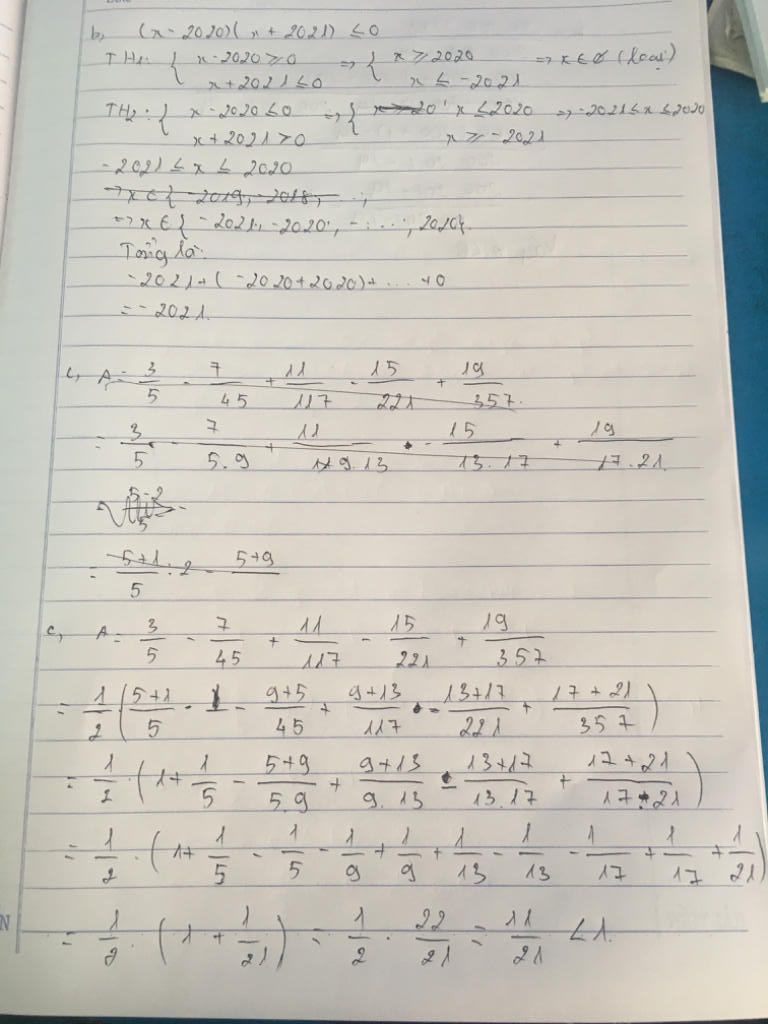 b, (x - 2020)(x + 2021) ≤ 0
TH1: { x - 2020 ≥ 0 => { x ≥ 2020 => x ∈ ∅ (loại)
x + 2021 ≤ 0 x ≤ -2021
TH2: { x - 2020 ≤ 0 => { x ≥ 20 x ≤ 2020 => -2021 ≤ x ≤ 2020
x + 2021 ≥ 0 x ≥ -2021
-2021 ≤ x ≤ 2020
=> x ∈ { -2019, -2018, ...;
=> x ∈ { -2021; -2020; ...; 2020}.
Tổng là:
-2021 + (-2020 + 2020) + ... + 0
= -2021.
c, A = 3/5 - 7/45 + 11/117 - 15/221 + 19/357.
= 3/5 - 7/5.9 + 11/9.13 - 15/13.17 + 19/17.21
5-2
5
= 5+1/5 : 2 - 5+9
c, A = 3/5 - 7/45 + 11/117 - 15/221 + 19/357
= 1/2 (5+1/5 - 9+5/45 + 9+13/117 - 13+17/221 + 17+21/357)
= 1/2 . (1 + 1/5 - 5+9/5.9 + 9+13/9.13 - 13+17/13.17 + 17+21/17.21)
= 1/2 . (1 + 1/5 - 1/5 - 1/9 + 1/9 + 1/13 - 1/13 - 1/17 + 1/17 + 1/21)
= 1/2 . (1 + 1/21) = 1/2 . 22/21 = 11/21 < 1.
N